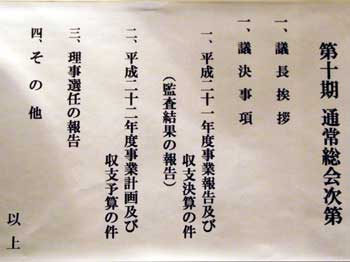 第十期 通常総会次第
一、議長挨拶
一、議決事項
一、平成二十一年度事業報告及び
収支決算の件
(監査結果の報告)
二、平成二十二年度事業計画及び
収支予算の件
三、理事選任の報告
四、その他
以上